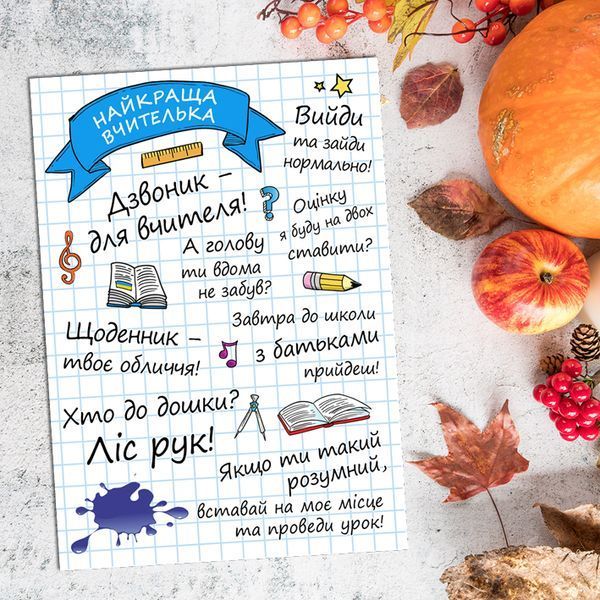 НАЙКРАЩА
ВЧИТЕЛЬКА
Вийди
та зайди
нормально!
Дзвоник –
для вчителя!
Оцінку
я буду на двох
ставити?
А голову
ти вдома
не забув?
Щоденник –
твоє обличчя!
Завтра до школи
з батьками
прийдеш!
Хто до дошки?
Ліс рук!
Якщо ти такий
розумний,
вставай на моє місце
та проведи урок!